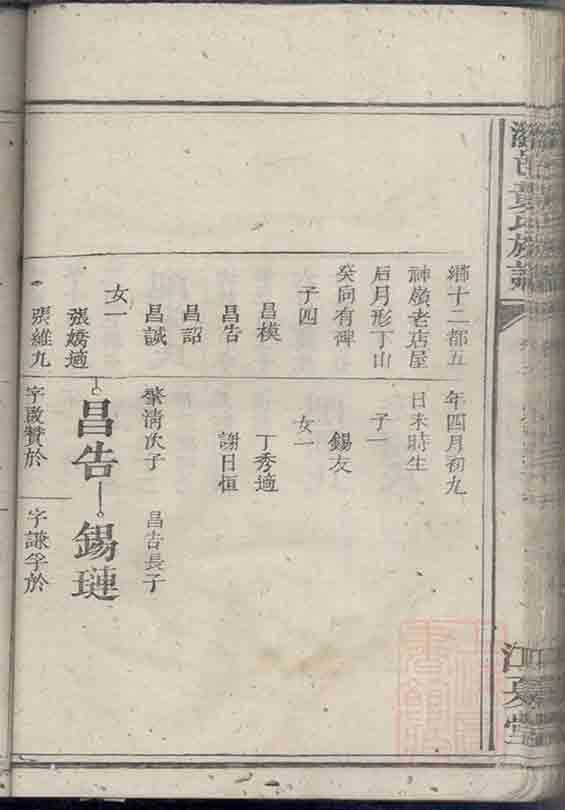 黃氏族譜
江夏堂
緜十二都五
神嶺老店屋
后月形丁山
癸向有碑
子四
昌模
昌告
昌詔
昌誠
女一
張嬌適
張維九
年四月初九
日未時生
子一
錫友
女一
丁秀適
謝日恒
肇淸次子
昌告
字啟贊於
昌告長子
錫璉
字謙孚於